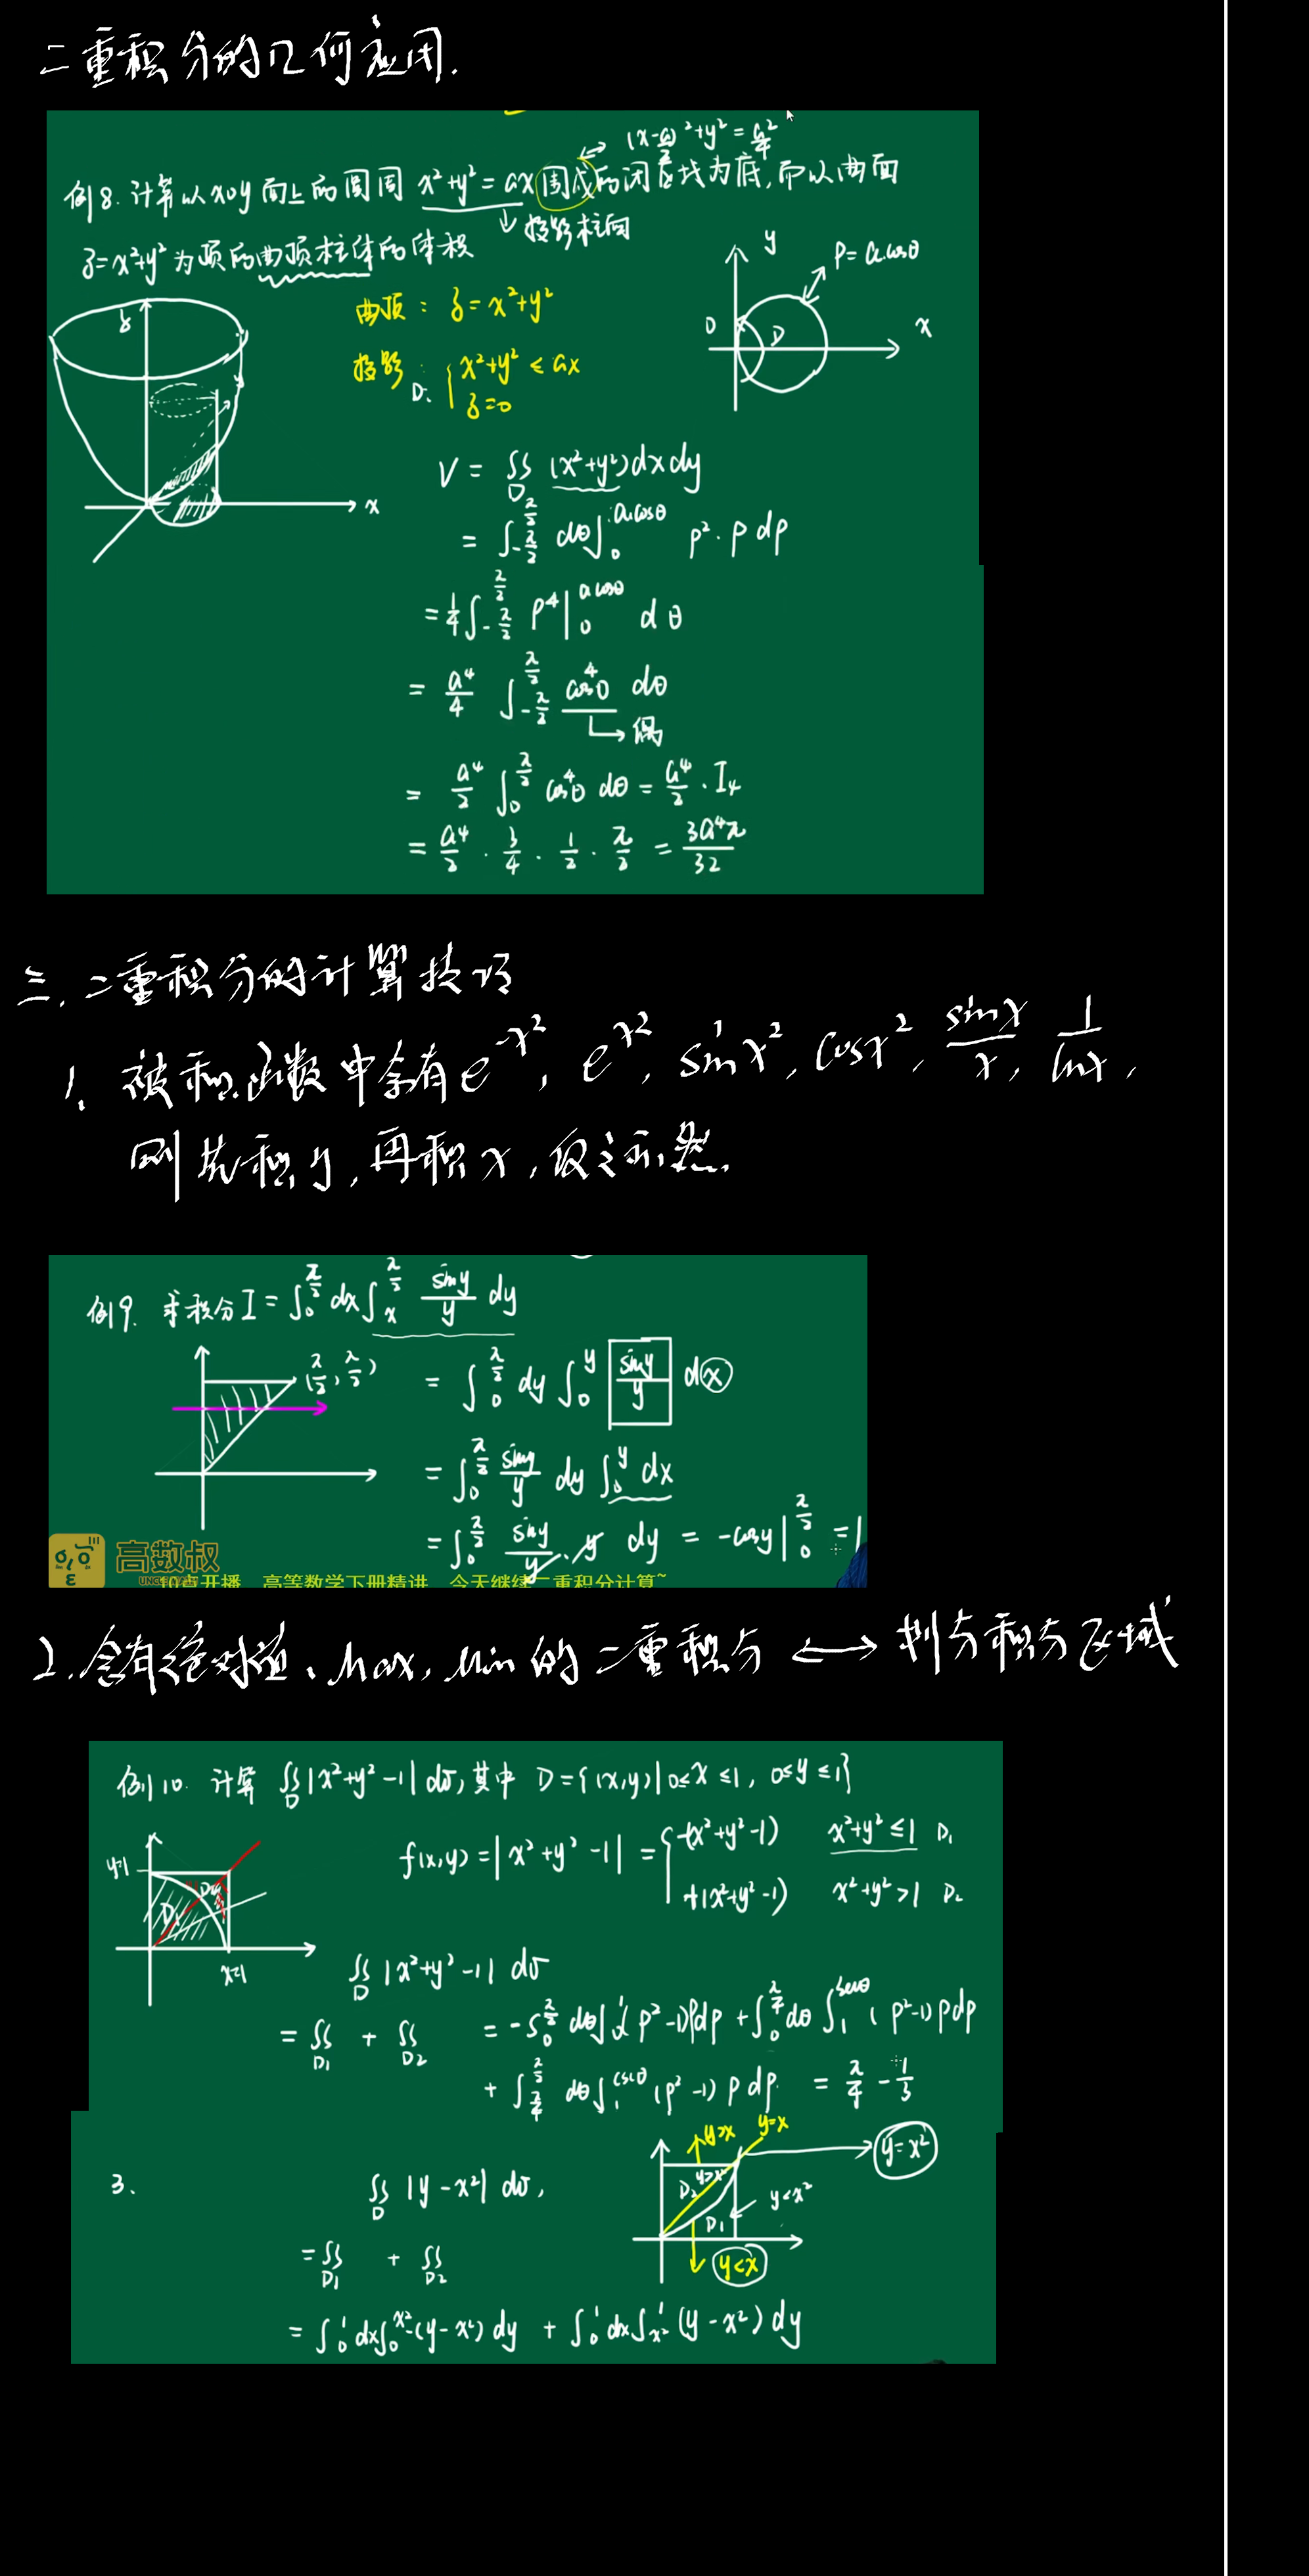 二重积分的几何应用.
(x-a/2)²+y²=a²/4
例8. 计算以xoy面上的圆周 x²+y²=ax围成的闭区域为底,而以曲面
↓投影柱面
z=x²+y²为顶的曲顶柱体的体积
y
ρ=a.cosθ
曲顶: z=x²+y²
z
O
D
x
投影: D. { x²+y² ≤ ax
z=0
V = ∬_D (x²+y²)dxdy
x
= ∫_{-π/2}^{π/2} dθ∫_0^{a.cosθ} ρ². ρ dρ
= 1/4 ∫_{-π/2}^{π/2} ρ⁴|_0^{a cosθ} dθ
= a⁴/4 ∫_{-π/2}^{π/2} cos⁴θ dθ
↳偶
= a⁴/2 ∫_0^{π/2} cos⁴θ dθ = a⁴/2 · I₄
= a⁴/2 · 3/4 · 1/2 · π/2 = 3a⁴π/32
三. 二重积分的计算技巧
1. 被积函数中含有e^{-x²}, e^{x²}, sinx², cosx², sinx/x, 1/lnx,
则先积y,再积x,反之亦然.
例9. 求积分 I = ∫_0^{π/2} dx∫_x^{π/2} siny/y dy
(π/2, π/2)
= ∫_0^{π/2} dy ∫_0^y siny/y dx
= ∫_0^{π/2} siny/y dy ∫_0^y dx
= ∫_0^{π/2} siny/y · y dy = -cosy|_0^{π/2} = 1
高数叔
点开播 高等数学下册精讲 今天继续二重积分计算~
2. 含有绝对值、Max, Min的二重积分 ⟷ 划分积分区域
例10. 计算 ∬_D |x²+y²-1| dσ, 其中 D={(x,y)|0≤x≤1, 0≤y≤1}
f(x,y)=|x²+y²-1| = { -(x²+y²-1) x²+y²≤1 D₁
+(x²+y²-1) x²+y²>1 D₂
y=1
D₁
D₂
x=1
∬_D |x²+y²-1| dσ
= ∬_{D₁} + ∬_{D₂} = -∫_0^{π/2} dθ∫_0^1 (ρ²-1)ρdρ + ∫_0^{π/4} dθ ∫_1^{secθ} (ρ²-1)ρdρ
+ ∫_{π/4}^{π/2} dθ∫_1^{cscθ} (ρ²-1) ρ dρ. = π/4 - 1/3
y>x
y=x
y=x²
3. ∬_D |y-x²| dσ,
D₂
y>x²
y<x²
D₁
= ∬_{D₁} + ∬_{D₂}
y<x
= ∫_0^1 dx∫_0^{x²} -(y-x²) dy + ∫_0^1 dx∫_{x²}^1 (y-x²) dy